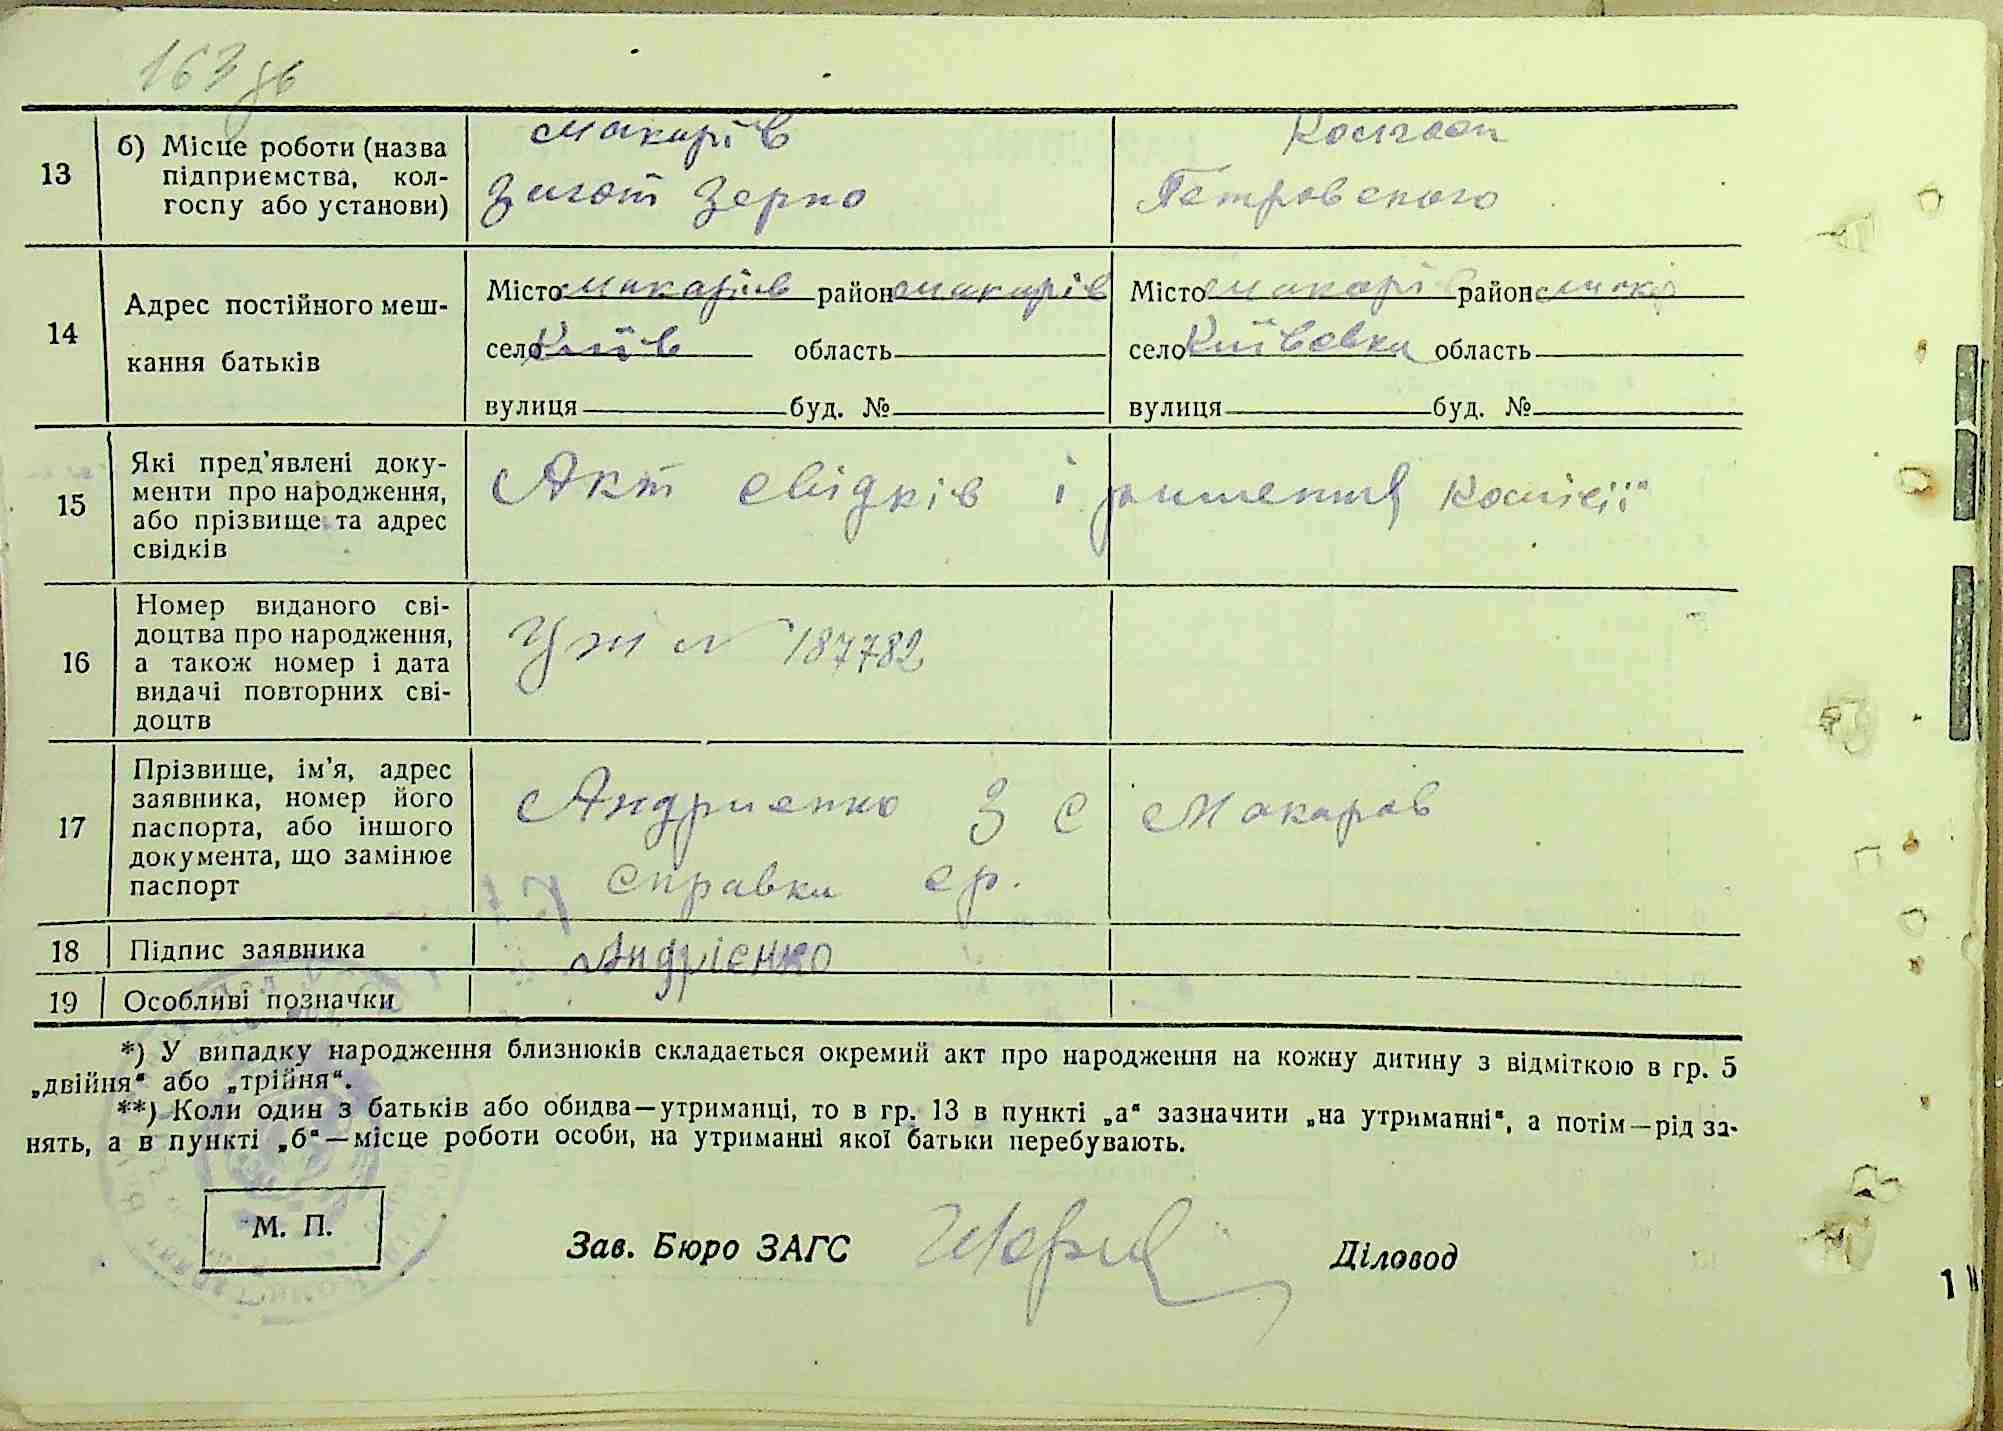 163 зв
13
б) Місце роботи (назва
підприємства, кол-
госпу або установи)
Макарів
Загот Зерно
Колгосп
Петровского
14
Адрес постійного меш-
кання батьків
Місто Макарів район Макарів
село Київ область
вулиця буд. №
Місто Макарів район Макар
село Київська область
вулиця буд. №
15
Які пред'явлені доку-
менти про народження,
або прізвище та адрес
свідків
Акт свідків і ришення комісії
16
Номер виданого сві-
доцтва про народження,
а також номер і дата
видачі повторних сві-
доцтв
N 187782
17
Прізвище, ім'я, адрес
заявника, номер його
паспорта, або іншого
документа, що замінює
паспорт
Андриенко З С Макаров
справка ср.
18
Підпис заявника
Андрієнко
19
Особливі позначки
*) У випадку народження близнюків складається окремий акт про народження на кожну дитину з відміткою в гр. 5
„двійня“ або „трійня“.
**) Коли один з батьків або обидва—утриманці, то в гр. 13 в пункті „а“ зазначити „на утриманні“, а потім—рід за-
нять, а в пункті „б“—місце роботи особи, на утриманні якої батьки перебувають.
М. П.
Зав. Бюро ЗАГС
Діловод
1